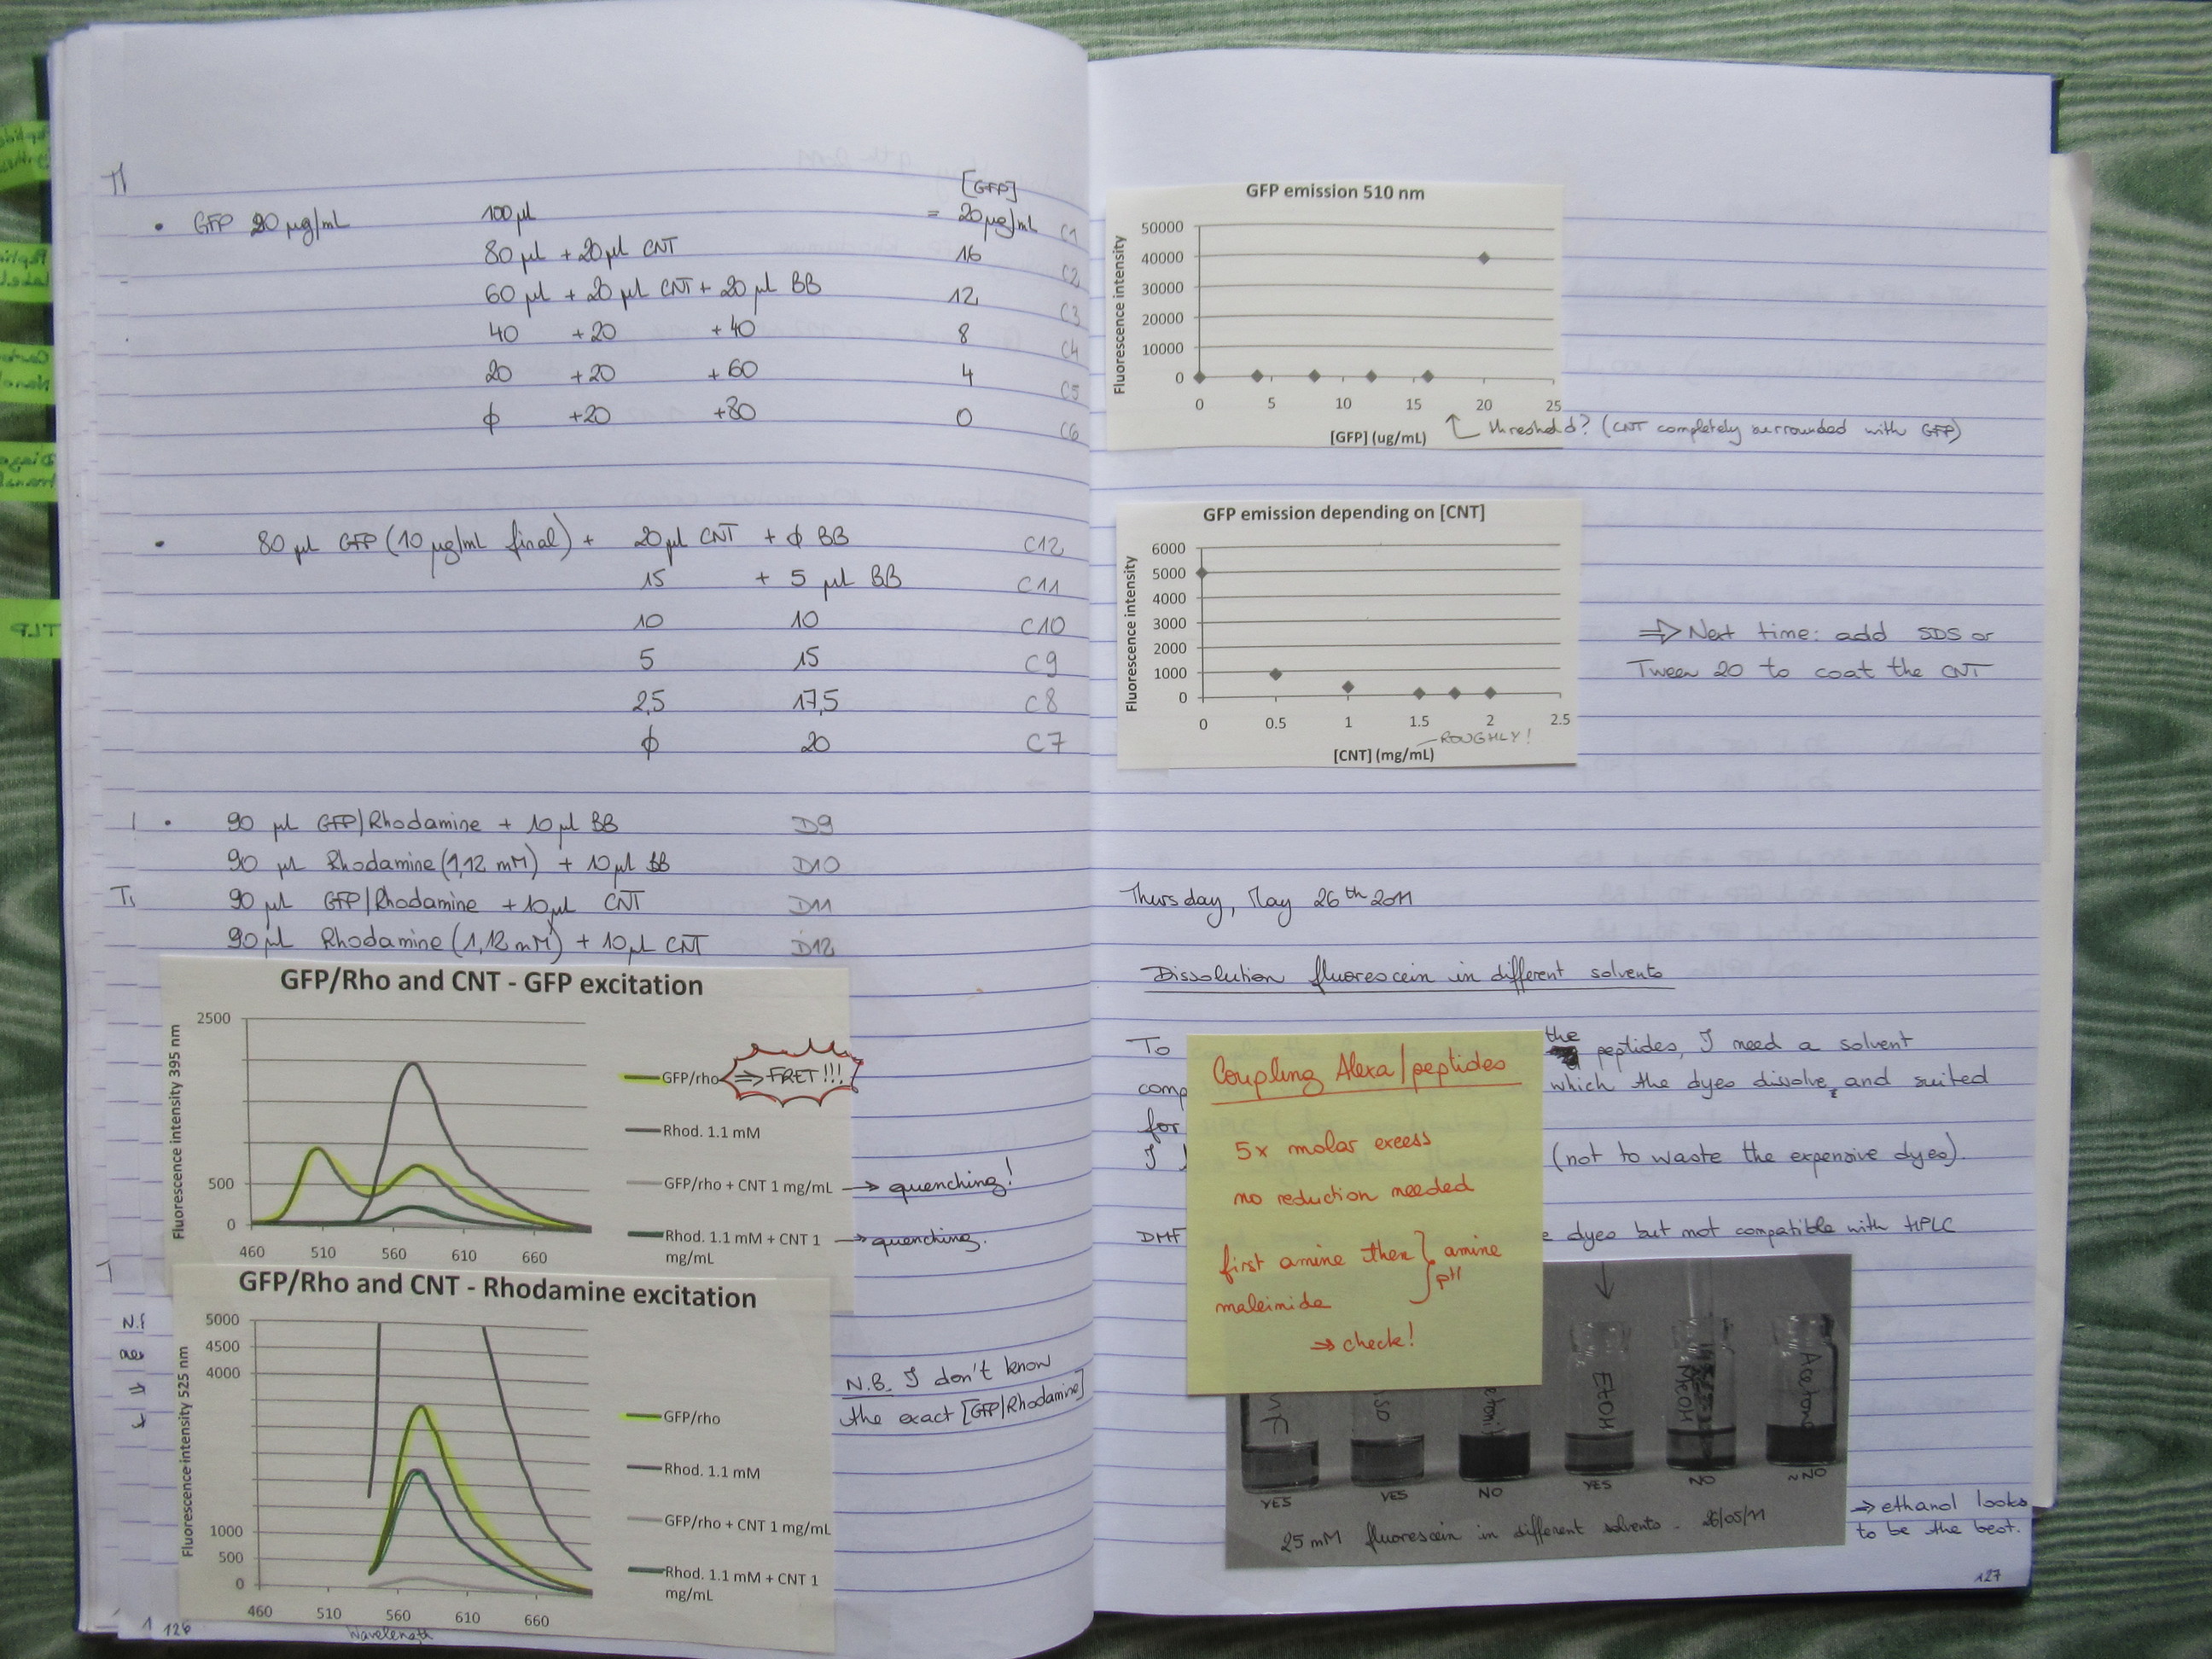 [GFP]
• GFP 20 µg/mL 100 µl = 20 µg/mL C1
80 µl + 20 µl CNT 16 C2
60 µl + 20 µl CNT + 20 µl BB 12 C3
40 +20 +40 8 C4
20 +20 +60 4 C5
ϕ +20 +80 0 C6
• 80 µl GFP (10 µg/mL final) + 20 µl CNT + ϕ BB C12
15 + 5 µl BB C11
10 10 C10
5 15 C9
2,5 17,5 C8
ϕ 20 C7
• 90 µl GFP/Rhodamine + 10 µl BB D9
90 µl Rhodamine (1,12 mM) + 10 µl BB D10
90 µl GFP/Rhodamine + 10 µl CNT D11
90 µl Rhodamine (1,12 mM) + 10 µl CNT D12
GFP/Rho and CNT - GFP excitation
Fluorescence intensity 395 nm
2500
500
0
460 510 560 610 660
GFP/rho ⇒ FRET!!!
Rhod. 1.1 mM
GFP/rho + CNT 1 mg/mL → quenching!
Rhod. 1.1 mM + CNT 1 → quenching.
mg/mL
GFP/Rho and CNT - Rhodamine excitation
Fluorescence intensity 525 nm
5000
4500
4000
1000
500
0
460 510 560 610 660
Wavelength
GFP/rho
Rhod. 1.1 mM
GFP/rho + CNT 1 mg/mL
Rhod. 1.1 mM + CNT 1
mg/mL
N.B. I don't know
the exact [GFP/Rhodamine]
126
GFP emission 510 nm
Fluorescence intensity
50000
40000
30000
20000
10000
0
0 5 10 15 20 25
[GFP] (ug/mL)
threshold? (CNT completely surrounded with GFP)
GFP emission depending on [CNT]
Fluorescence intensity
6000
5000
4000
3000
2000
1000
0
0 0.5 1 1.5 2 2.5
[CNT] (mg/mL)
ROUGHLY!
⇒ Next time: add SDS or
Tween 20 to coat the CNT
Thursday, May 26th 2011
Dissolution fluorescein in different solvents
To the peptides, I need a solvent
comp which the dyes dissolve, and suited
for
I (not to waste the expensive dyes).
DMF dyes but not compatible with HPLC
Coupling Alexa/peptides
5x molar excess
no reduction needed
first amine then } amine
maleimide pH
⇒ check!
EtOH MeOH Acetone
YES YES NO YES NO ~NO
25 mM fluorescein in different solvents - 26/05/11
⇒ ethanol looks
to be the best.
127
TLP